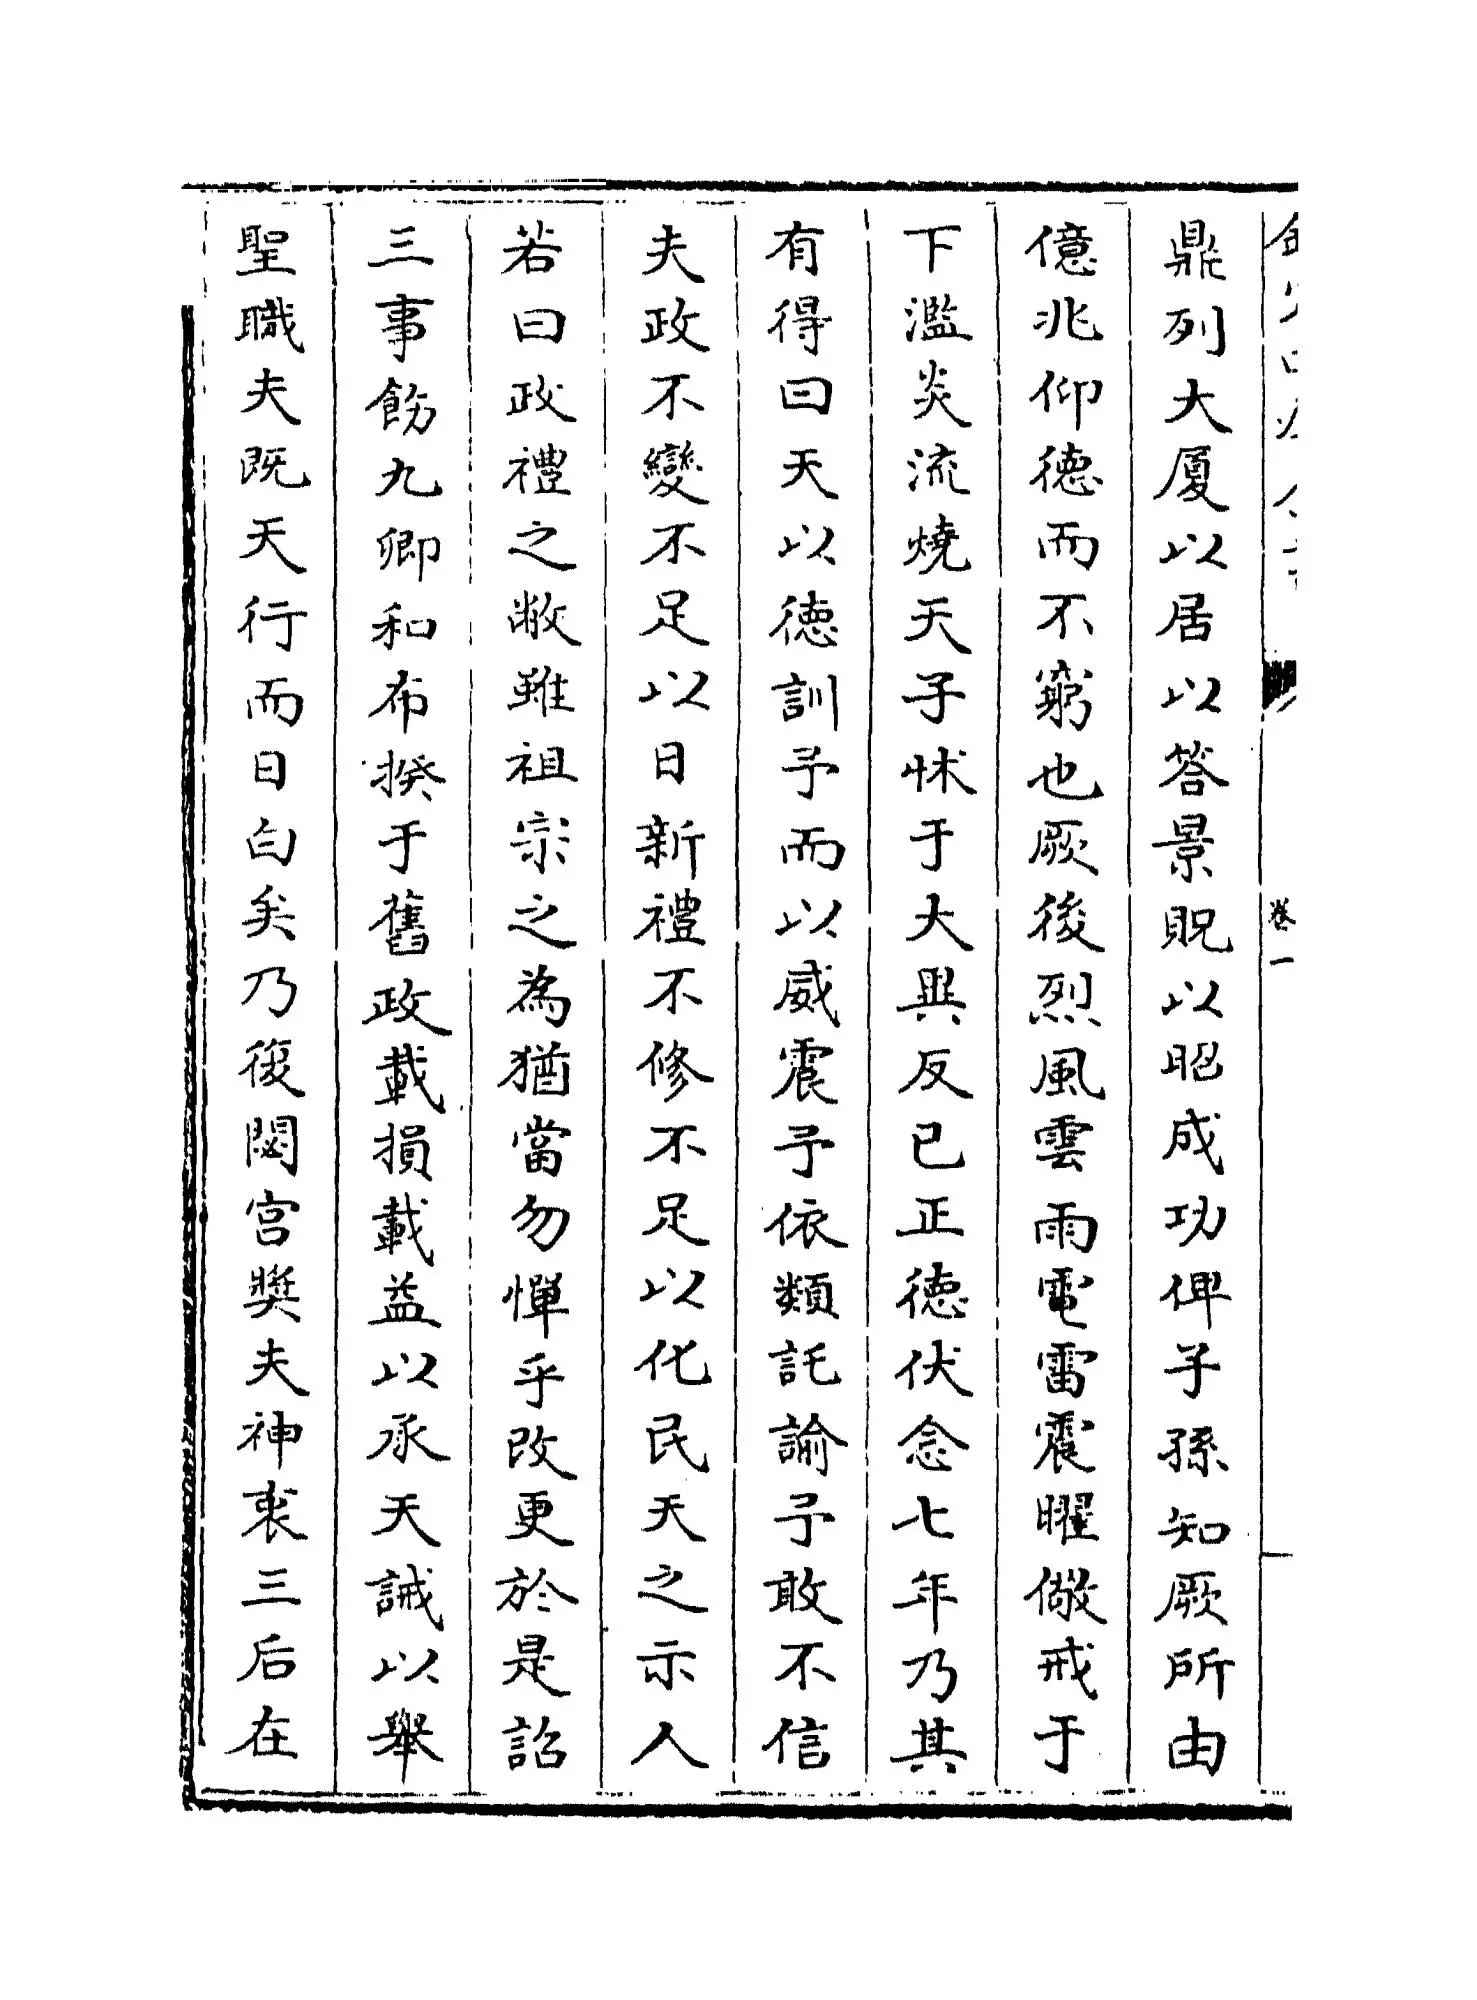 卷一
鼎列大厦以居以答景貺以昭成功俾子孫知厥所由
億兆仰德而不窮也厥後烈風雲雨電雷震曜儆戒于
下濫炎流燒天子怵于大興反已正德伏念七年乃其
有得曰天以德訓予而以威震予依類託諭予敢不信
夫政不變不足以日新禮不修不足以化民天之示人
若曰政禮之敝雖祖宗之為猶當勿憚乎改更於是詔
三事飭九卿和布揆于舊政載損載益以承天誡以舉
聖職夫既天行而日白矣乃復閟宮獎夫神衷三后在